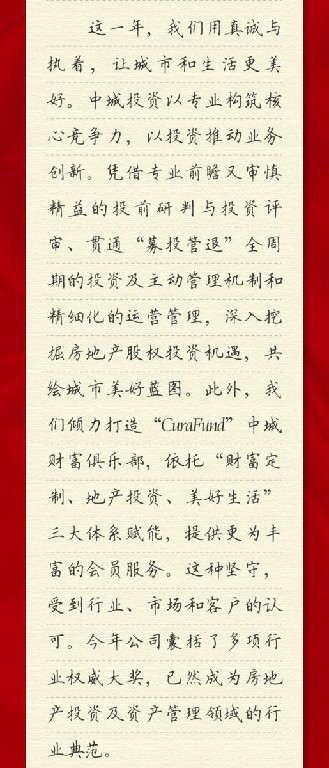 这一年，我们用真诚与
执着，让城市和生活更美
好。中城投资以专业构筑核
心竞争力，以投资推动业务
创新。凭借专业前瞻又审慎
精益的投前研判与投资评
审、贯通“募投管退”全周
期的投资及主动管理机制和
精细化的运营管理，深入挖
掘房地产股权投资机遇，共
绘城市美好蓝图。此外，我
们倾力打造“CuraFund”中城
财富俱乐部，依托“财富定
制、地产投资、美好生活”
三大体系赋能，提供更为丰
富的会员服务。这种坚守，
受到行业、市场和客户的认
可。今年公司囊括了多项行
业权威大奖，已然成为房地
产投资及资产管理领域的行
业典范。